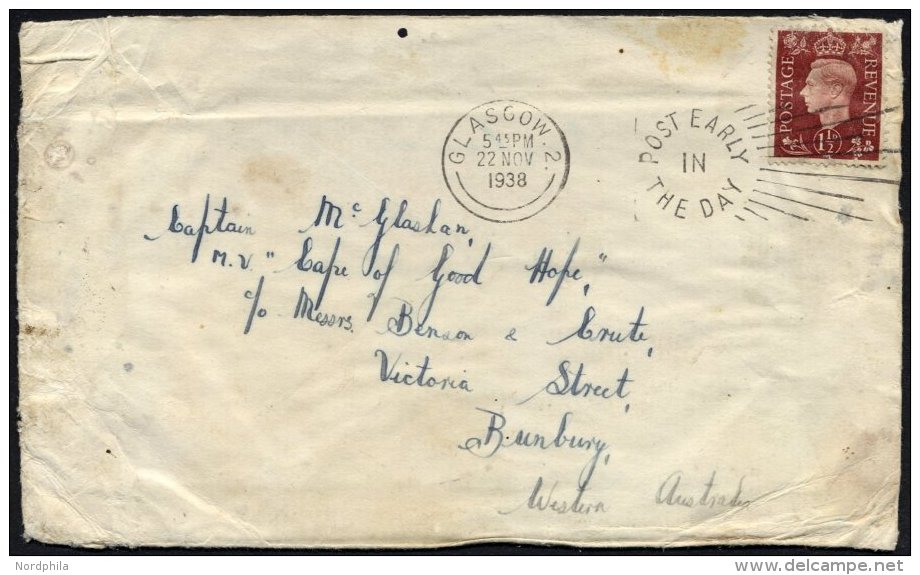 POSTAGE REVENUE
1½D
GLASGOW. 2.
5 45 PM
22 NOV
1938
POST EARLY
IN
THE DAY
Captain Mc Glashan,
M.V. "Cape of Good Hope,"
c/o Messrs. Benson & Crute,
Victoria Street,
Bunbury,
Western Australia
Nordphila
delcampe.net